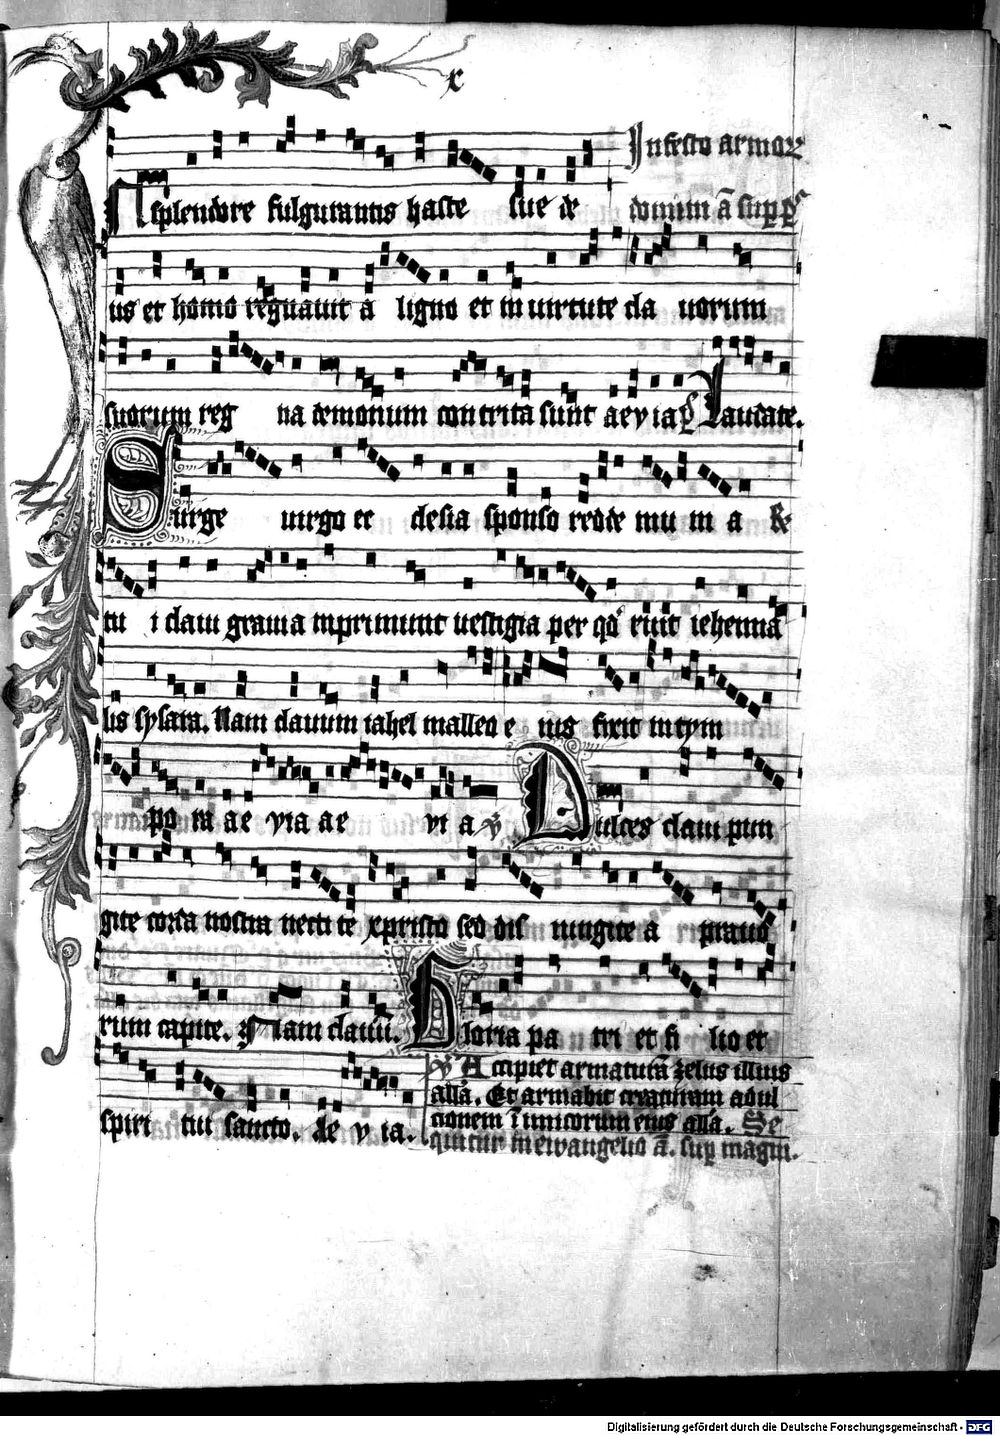 x
In festo armor
In splendore fulgurantis haste sue de domini ā sup ps
us et homo regnauit a ligno et in uirtute cla uorum
suorum reg na demonum contrita sunt aeyia ps Laudate.
Surge uirgo ec clesia sponso redde mu ni a &
tu i claui grauia inprimunt uestigia per qd̓ ruit iehenna
lis sysara. Nam clauum iahel malleo e ius fixit in tym
po ra ae yia ae yi a ℣ Dulces claui pun
gite corda nostra necti te xpristo sed dis iungite a prauo
rum capite. Nam clauū. Gloria pa tri et fi lio et
spiri tui sancto. Ae y ia.
℣ Accipiet armaturā zelus illius
all̓a. Et armabit creaturam ad ul
cionem īimicorum eius all̓a. Se
quitur in ewangelio ā. sup magni.
Digitalisierung gefördert durch die Deutsche Forschungsgemeinschaft - DFG